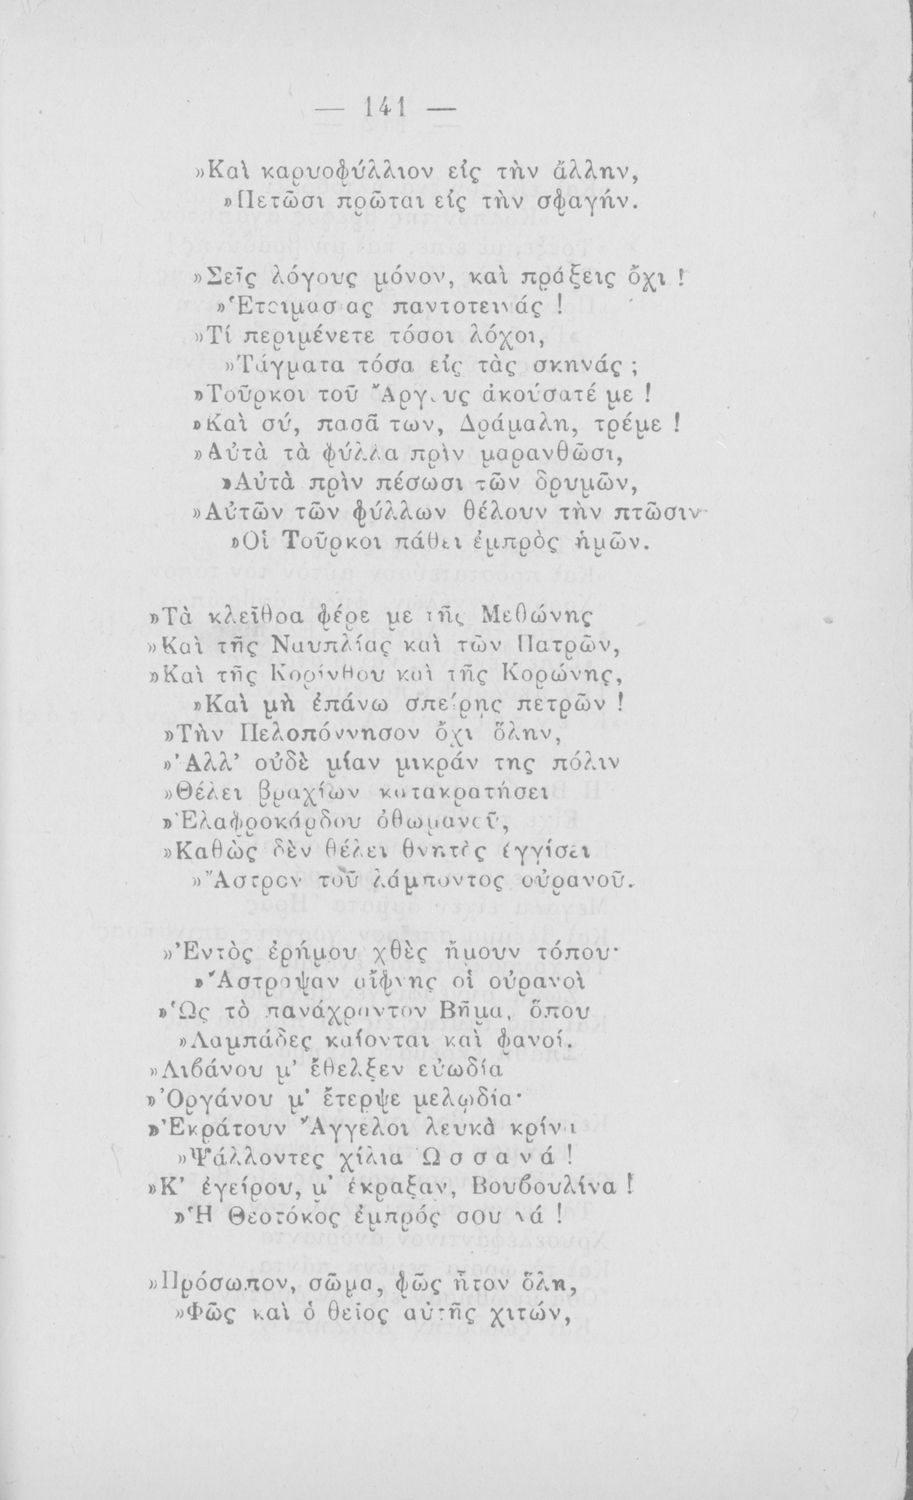 — 141 —
»Καὶ καρυοφύλλιον εἰς τὴν ἄλλην,
»Πετῶσι πρῶται εἰς τὴν σφαγήν.
»Σεῖς λόγους μόνον, καὶ πράξεις ὄχι !
»Ἑτοιμασίας παντοτεινάς !
»Τί περιμένετε τόσοι λόχοι,
»Τάγματα τόσα εἰς τὰς σκηνάς ;
»Τοῦρκοι τοῦ Ἄργους ἀκούσατέ με !
»Καὶ σύ, πασᾶ των, Δράμαλη, τρέμε !
»Αὐτὰ τὰ φύλλα πρὶν μαρανθῶσι,
»Αὐτὰ πρὶν πέσωσι τῶν δρυμῶν,
»Αὐτῶν τῶν φύλλων θέλουν τὴν πτῶσιν
»Οἱ Τοῦρκοι πάθει ἐμπρὸς ἡμῶν.
»Τὰ κλεῖθρα φέρε με τῆς Μεθώνης
»Καὶ τῆς Ναυπλίας καὶ τῶν Πατρῶν,
»Καὶ τῆς Κορίνθου καὶ τῆς Κορώνης,
»Καὶ μὴ ἐπάνω σπείρῃς πετρῶν !
»Τὴν Πελοπόννησον ὄχι ὅλην,
»Ἀλλ' οὐδὲ μίαν μικράν της πόλιν
»Θέλει βραχίων κατακρατήσει
»Ἐλαφροκάρδου ὀθωμανοῦ,
»Καθὼς δὲν θέλει θνητὸς ἐγγίσει
»Ἄστρον τοῦ λάμποντος οὐρανοῦ.
»Ἐντὸς ἐρήμου χθὲς ἤμουν τόπου·
»Ἄστραψαν αἴφνης οἱ οὐρανοὶ
»Ὡς τὸ πανάχραντον Βῆμα, ὅπου
»Λαμπάδες καίονται καὶ φανοί.
»Λιβάνου μ' ἔθελξεν εὐωδία
»Ὀργάνου μ' ἔτερψε μελῳδία·
»Ἐκράτουν Ἄγγελοι λευκὰ κρίνα
»Ψάλλοντες χίλια Ὡσσανά !
»Κ' ἐγείρου, μ' ἔκραξαν, Βουβουλίνα !
»Ἡ Θεοτόκος ἐμπρός σου νά !
»Πρόσωπον, σῶμα, φῶς ἦτον ὅλη,
»Φῶς καὶ ὁ θεῖος αὐτῆς χιτών,